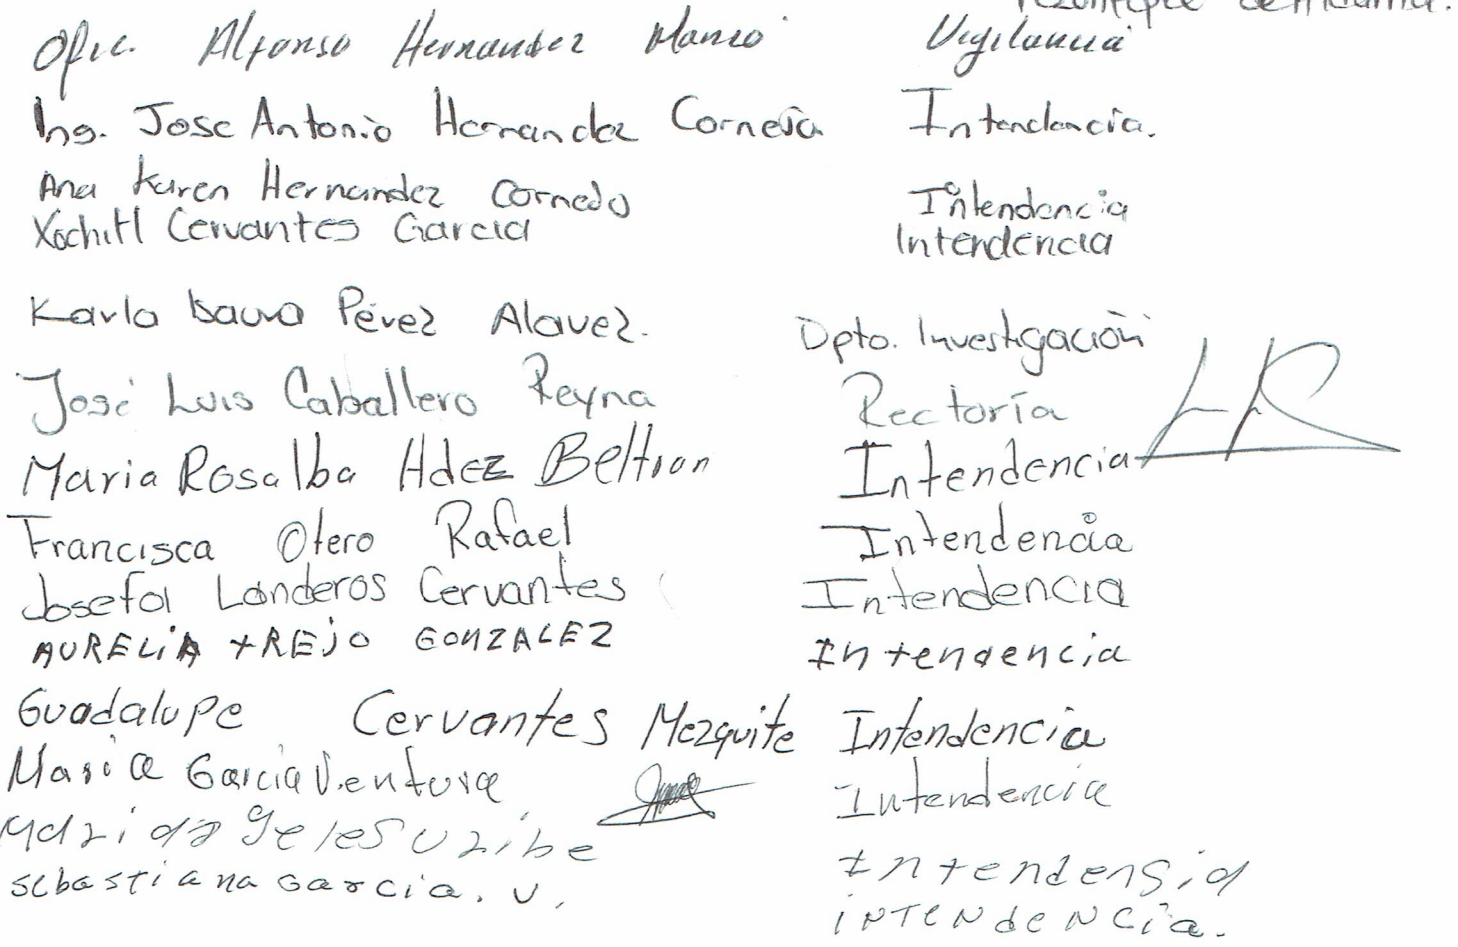 Ofic. Alfonso Hernandez Manzo Vigilancia
Ing. Jose Antonio Hernandez Cornejo Intendencia.
Ana Karen Hernandez Cornedo Intendencia
Xochitl Cervantes Garcia Intendencia
Karla Isaura Pérez Alavez. Dpto. Investigación
José Luis Caballero Reyna Rectoría
Maria Rosalba Hdez Beltran Intendencia
Francisca Otero Rafael Intendencia
Josefa Landeros Cervantes Intendencia
AURELIA TREJO GONZALEZ Intendencia
Guadalupe Cervantes Mezquite Intendencia
Maria Garcia Ventura Intendencia
Uribe Intendensia
Sebastiana Garcia. V. INTENdENCia.